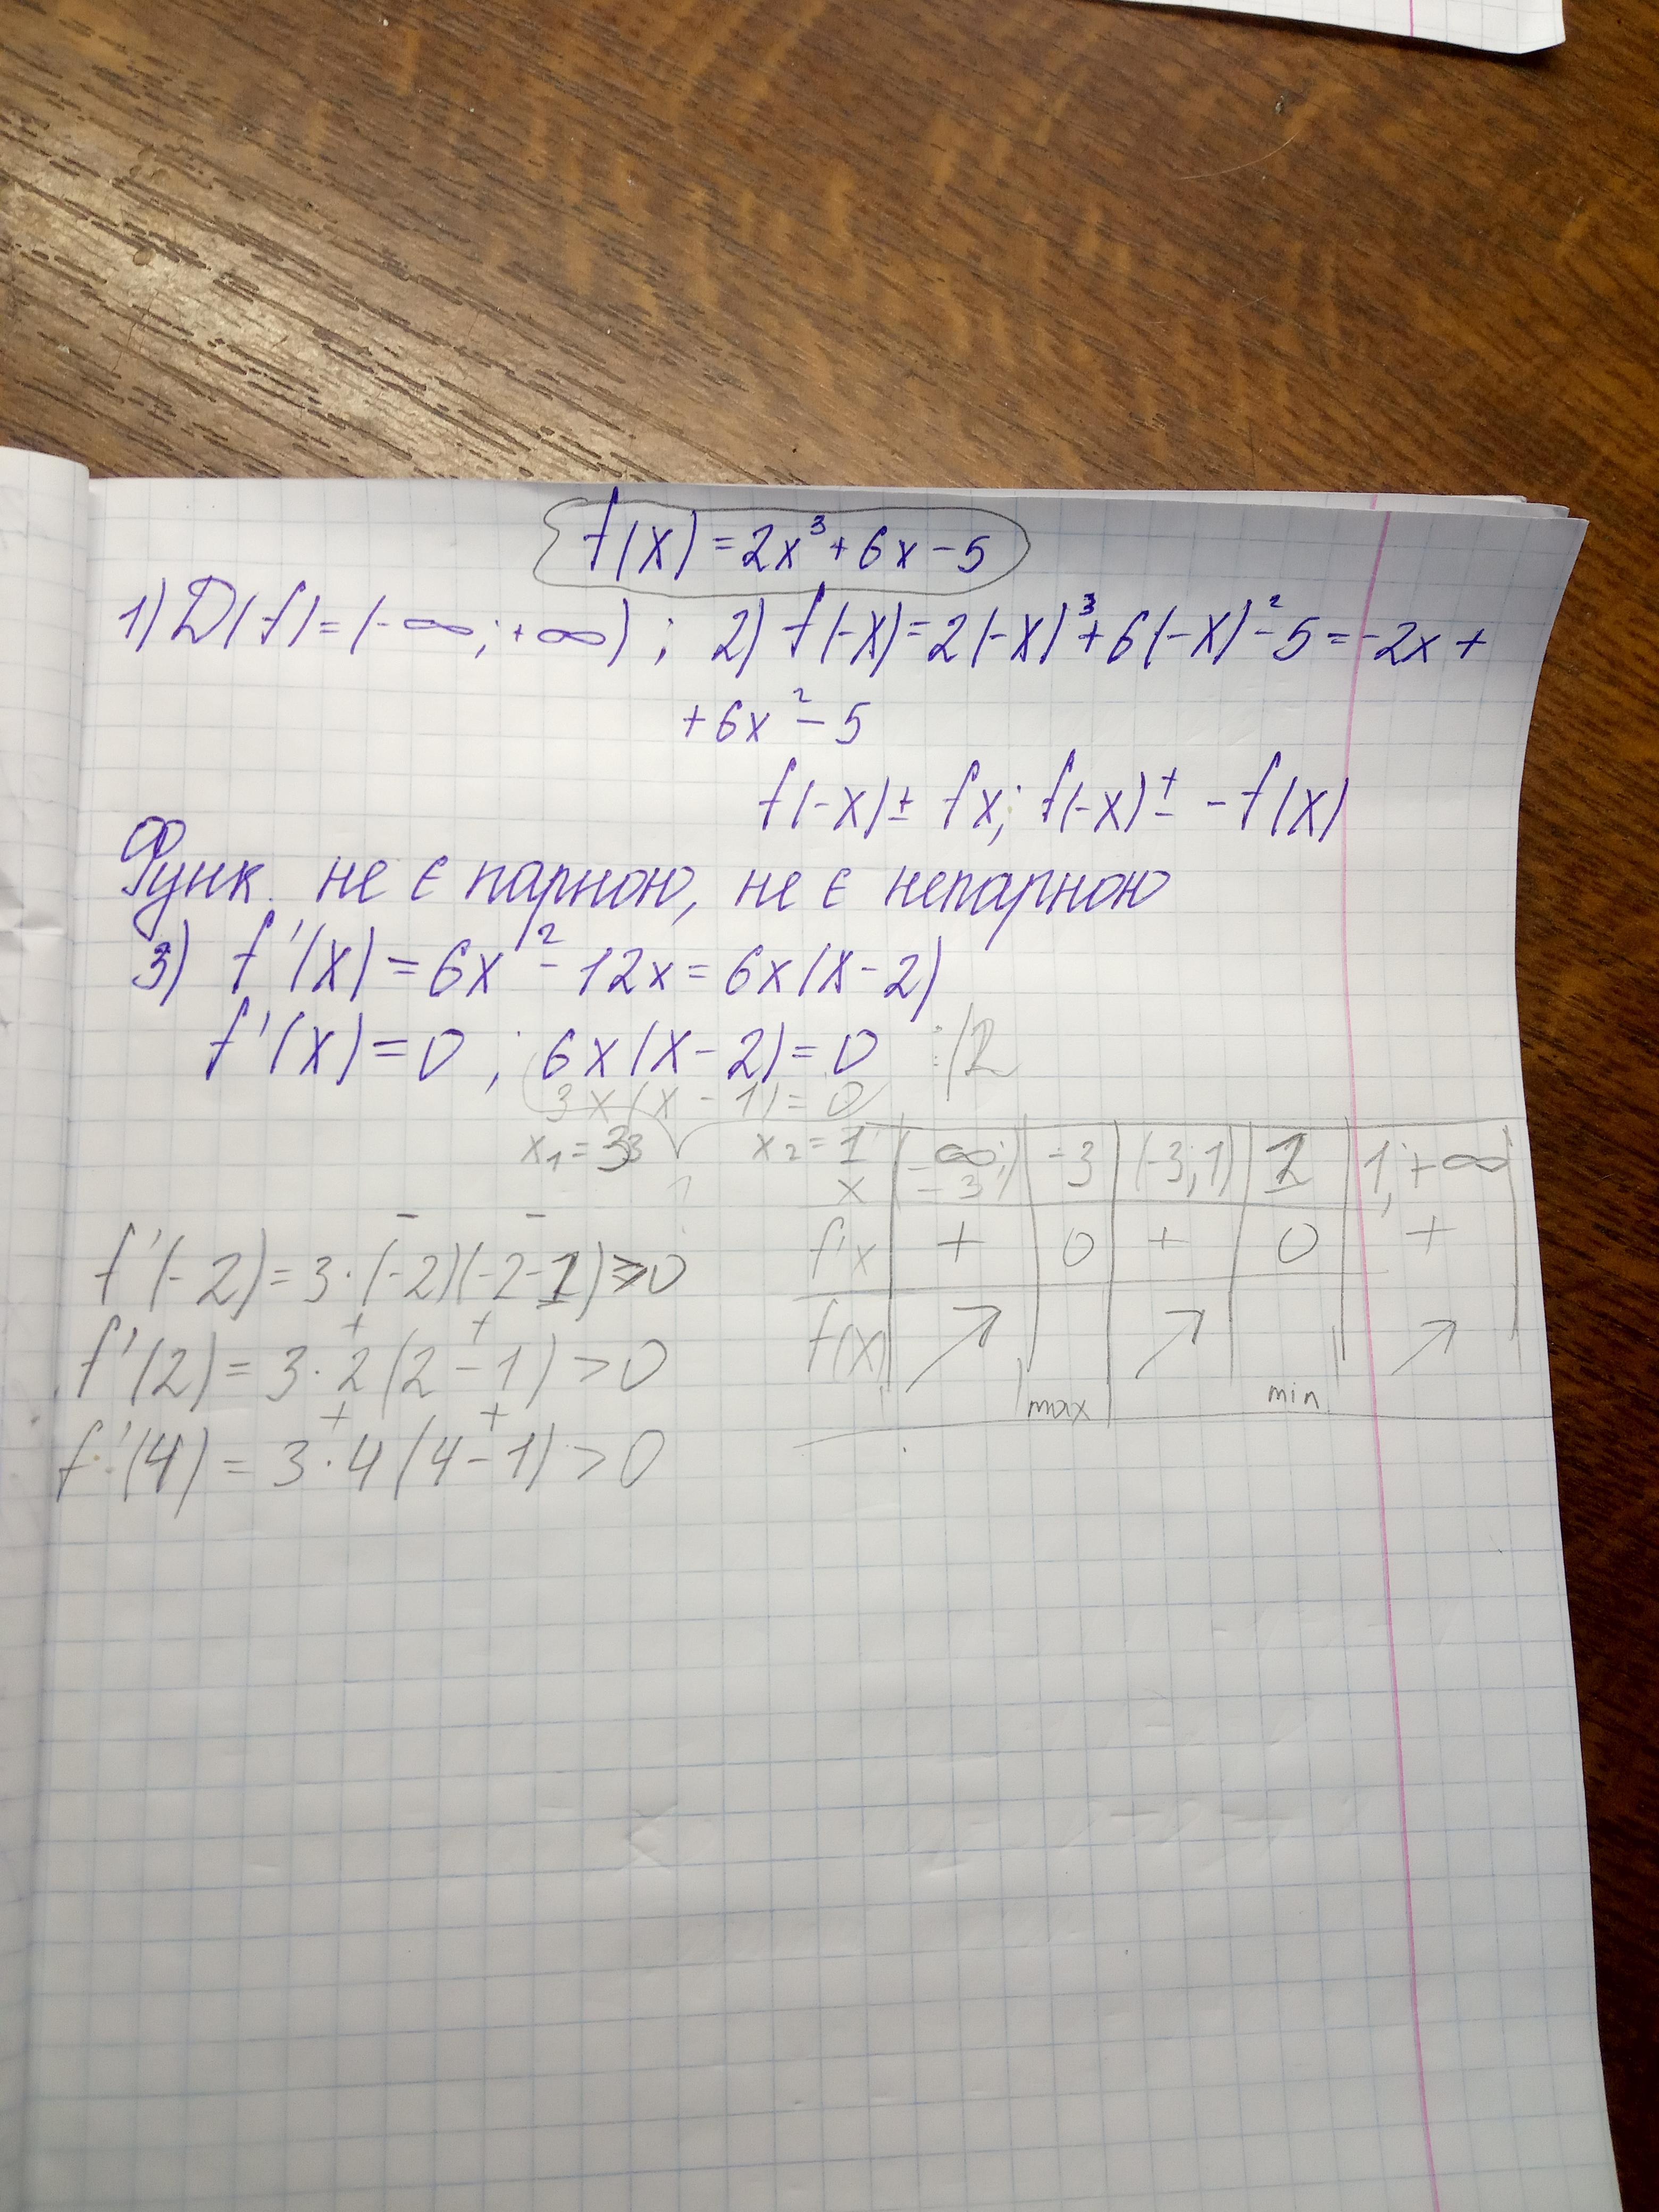 f(x) = 2x³ + 6x - 5
1) D(f) = (-∞; +∞) ; 2) f(-x) = 2(-x)³ + 6(-x)² - 5 = -2x +
+ 6x² - 5
f(-x) ± fx; f(-x) ± -f(x)
Функ. не є парною, не є непарною
3) f'(x) = 6x² - 12x = 6x(x - 2)
f'(x) = 0 ; 6x(x - 2) = 0 :/2
3x(x - 1) = 0
x₁ = 33 x₂ = 1
x (-∞; -3) -3 (-3; 1) 1 1; +∞
f'x + 0 + 0 +
f(x) ↗ ↗ ↗
max min
- -
f'(-2) = 3·(-2)(-2-1) > 0
+ +
f'(2) = 3·2(2-1) > 0
+ +
f'(4) = 3·4(4-1) > 0